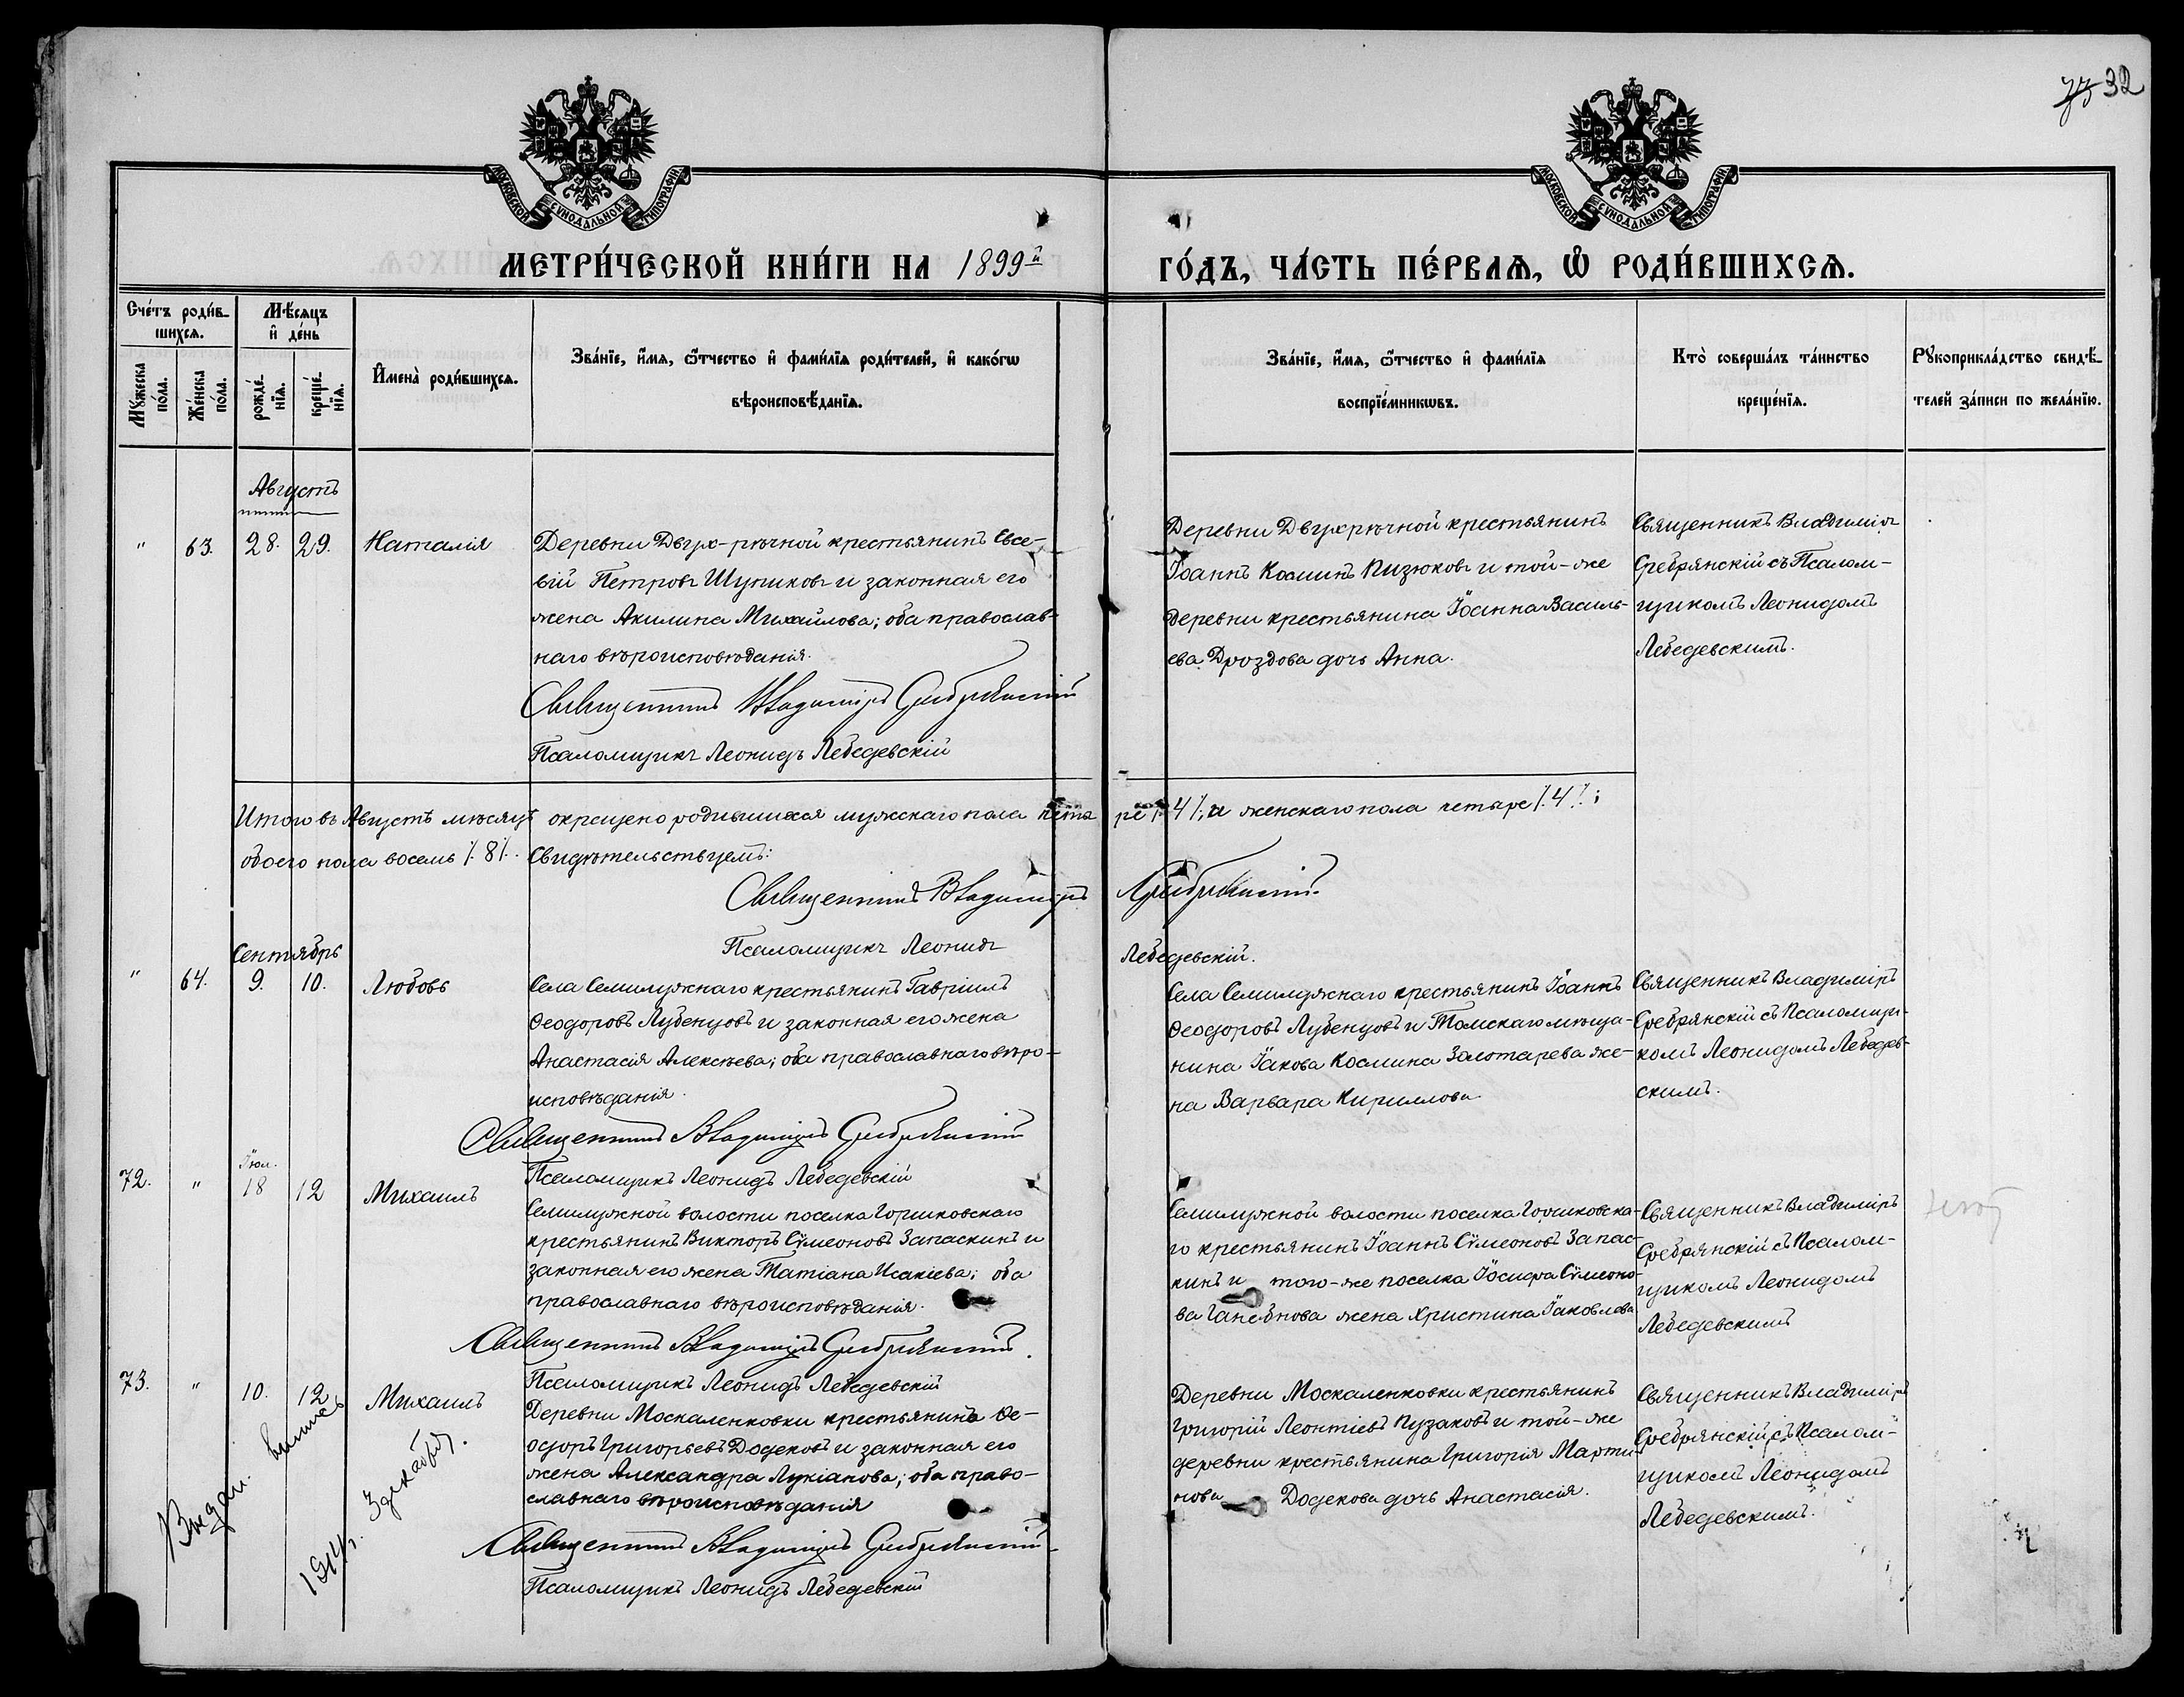 33 32
МОСКОВСКОЙ СѴНОДАЛЬНОЙ ТИПОГРАФІИ
МОСКОВСКОЙ СѴНОДАЛЬНОЙ ТИПОГРАФІИ
МЕТРИ́ЧЕСКОЙ КНИ́ГИ НА 1899й ГО́ДЪ, ЧА́СТЬ ПЕ́РВАѦ, Ѽ РОДИ́ВШИХСѦ.
Сче́тъ роди́в-
шихся.
Мꙋ́жеска
по́ла.
Же́нска
по́ла.
Мѣ́сяцъ
и҆ де́нь
рожде́-
нїя.
креще́-
нїя.
И҆мена̀ роди́вшихся.
Зва́нїе, и҆́мя, ѻ҆́тчество и҆ фами́лїя роди́телей, и҆ како́гѡ
вѣроисповѣ́данїя.
Зва́нїе, и҆́мя, ѻ҆́тчество и҆ фами́лїя
воспрїе́мникѡвъ.
Кто̀ соверша́лъ та́инство
креще́нїя.
Рꙋкоприкла́дство свидѣ́-
телей за́писи по жела́нїю.
Августъ
" 63. 28. 29. Наталія
Деревни Двух-рѣчной крестьянинъ Евсе-
вій Петровъ Шупиковъ и законная его
жена Акилина Михайлова; оба православ-
наго вѣроисповѣданія.
Священникъ Владиміръ Сребрянскій
Псаломщикъ Леонидъ Лебедевскій
Деревни Двухрѣчной крестьянинъ
Іоаннъ Косминъ Пизюковъ и той-же
деревни крестьянина Іоанна Василь-
ева Дроздова дочь Анна.
Священникъ Владиміръ
Сребрянскій съ Псалом-
щикомъ Леонидомъ
Лебедевскимъ.
Итого въ Августѣ мѣсяцѣ окрещено родившихся мужскаго пола четы ре /.4./, а женскаго пола четыре /.4./;
обоего пола восемь /.8./. Свидѣтельствуемъ:
Священникъ Владиміръ Сребрянскій.
Псаломщикъ Леонидъ Лебедевскій.
Сентябрь
" 64. 9. 10. Любовь
Села Семилужнаго крестьянинъ Гавріилъ
Ѳеодоровъ Лубенцовъ и законная его жена
Анастасія Алексѣева; оба православнаго вѣро-
исповѣданія.
Священникъ Владиміръ Сребрянскій
Псаломщикъ Леонидъ Лебедевскій
Села Семилужнаго крестьянинъ Іоаннъ
Ѳеодоровъ Лубенцовъ и Томскаго мѣща-
нина Іакова Космина Золотарева же-
на Варвара Кириллова.
Священникъ Владиміръ
Сребрянскій съ Псаломщи-
комъ Леонидомъ Лебедев-
скимъ.
Іюл.
72. " 18 12 Михаилъ
Семилужной волости поселка Горшковскаго
крестьянинъ Викторъ Сѵмеоновъ Запаскинъ и
законная его жена Татіана Исакіева; оба
православнаго вѣроисповѣданія.
Священникъ Владиміръ Сребрянскій.
Псаломщикъ Леонидъ Лебедевскій
Семилужной волости поселка Горшковска-
го крестьянинъ Іоаннъ Сѵмеоновъ Запас-
кинъ и того-же поселка Іосифа Сѵмеоно-
ва жена Христина Іаковлева
Священникъ Владиміръ
Сребрянскій съ Псалом-
щикомъ Леонидомъ
Лебедевскимъ
73. " 10. 12 Михаилъ
Деревни Москаленковки крестьянинъ Ѳе-
одоръ Григорьевъ Додековъ и законная его
жена Александра Лукіанова; оба право-
славнаго вѣроисповѣданія
Священникъ Владиміръ Сребрянскій
Псаломщикъ Леонидъ Лебедевскій
Деревни Москаленковки крестьянинъ
Григорій Леонтіевъ Пузаковъ и той-же
деревни крестьянина Григорія Марти-
нова Додекова дочь Анастасія.
Священникъ Владиміръ
Сребрянскій съ Псалом-
щикомъ Леонидомъ
Лебедевскимъ.
выпись
1914г. 3 декабря.